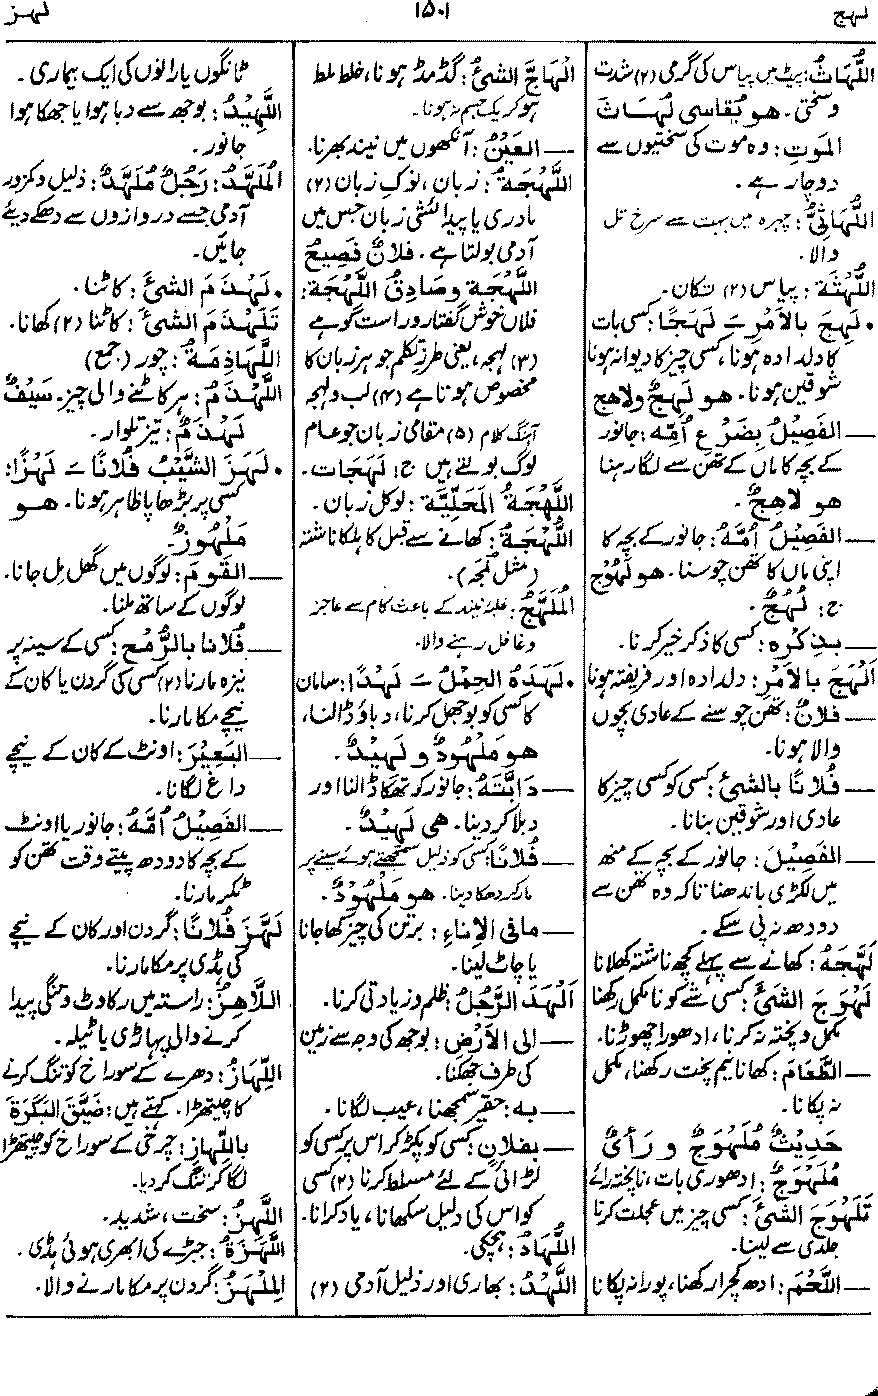 لهج
۱۵۰۱
لهز
اللُّهَاثُ: پیٹ میں پیاس کی گرمی (۲) شدت
وسختی۔ هو يُقاسى لُهاثَ
المَوتِ: وہ موت کی سختیوں سے
دوچار ہے۔
اللُّهَاثِيُّ: چہرہ میں بہت سے سرخ تل
والا۔
اللُّهْثَة: پیاس (۲) تکان۔
• لَهِجَ بالأمْرِ ــَ لَهَجًا: کسی بات
کا دلدادہ ہونا، کسی چیز کا دیوانہ ہونا
شوقین ہونا۔ هو لَهِجٌ ولاهِج
— الفَصِيلُ بِضَرْعِ أُمِّه: جانور
کے بچہ کا ماں کے تھن سے لگا رہنا
هو لاهِجٌ۔
— الفَصِيلُ أُمَّهُ: جانور کے بچہ کا
اپنی ماں کا تھن چوسنا۔ هو لَهُوْج
ج: لُهُجٌ۔
— بذِكْرِه: کسی کا ذکر خیر کرنا۔
أَلْهَجَ بالأمْرِ: دلدادہ اور فریفتہ ہونا
— فلانٌ: تھن چوسنے کے عادی بچوں
والا ہونا۔
— فُلانًا بالشيْءِ: کسی کو کسی چیز کا
عادی اور شوقین بنانا۔
— الفَصِيلَ: جانور کے بچہ کے منھ
میں لکڑی باندھنا تاکہ وہ تھن سے
دودھ نہ پی سکے۔
لَهَّجَهُ: کھانے سے پہلے کچھ ناشتہ کھلانا
لَهْوَجَ الشيْءَ: کسی شے کو نامکمل رکھنا
مکمل و پختہ نہ کرنا، ادھورا چھوڑنا۔
— الطَّعَامَ: کھانا نیم پخت رکھنا، مکمل
نہ پکانا۔
حَدِيثٌ مُلَهْوَجٌ و رَأىٌ
مُلَهْوَجٌ: ادھوری بات، ناپختہ رائے
تَلَهْوَجَ الشيْءَ: کسی چیز میں عجلت کرنا
جلدی سے لینا۔
— اللَّحْمَ: ادھ کچرا رکھنا، پورا نہ پکانا
الْهَاجَّ الشيْءُ: گڈمڈ ہونا، خلط ملط
ہو کر یک جسم نہ ہونا۔
— العَيْنُ: آنکھوں میں نیند بھرنا۔
اللَّهْجَةُ: زبان، نوکِ زبان (۲)
مادری یا پیدائشی زبان جس میں
آدمی بولتا ہے۔ فلانٌ فَصِيحُ
اللَّهْجَة وصَادِقُ اللَّهْجَة:
فلاں خوش گفتار و راست گو ہے
(۳) لہجہ، یعنی طرزِ تکلم جو ہر زبان کا
مخصوص ہوتا ہے (۴) لب ولہجہ
آہنگ کلام (۵) مقامی زبان جو عام
لوگ بولتے ہیں ج: لَهَجَات۔
اللَّهْجَةُ المَحَلِّيَّة: لوکل زبان۔
اللُّهْجَةُ: کھانے سے قبل کا ہلکا ناشتہ
(مثل لُمجہ)۔
المُلْهَجُّ: غلبۂ نیند کے باعث کام سے عاجز
وغافل رہنے والا۔
• لَهَدَهُ الحِمْلُ ــَ لَهْدًا: سامان
کا کسی کو بوجھل کرنا، دباؤ ڈالنا،
هو مَلْهُودٌ و لَهِيدٌ۔
— دَابَّتَهُ: جانور کو تھکا ڈالنا اور
دبلا کر دینا۔ هى لَهِيدٌ۔
— فُلانًا: کسی کو ذلیل سمجھتے ہوئے سینے پر
مار کر دھکا دینا۔ هو مَلْهُودٌ۔
— مافى الإناءِ: برتن کی چیز کھا جانا
یا چاٹ لینا۔
أَلْهَدَ الرَّجُلُ: ظلم و زیادتی کرنا۔
— الى الأرْضِ: بوجھ کی وجہ سے زمین
کی طرف جھکنا۔
— به: حقیر سمجھنا، عیب لگانا۔
— بفلانٍ: کسی کو پکڑ کر اس پر کسی کو
لڑائی کے لئے مسلط کرنا (۲) کسی
کو اس کی دلیل سکھانا، یاد کرانا۔
اللُّهَادُ: ہچکی۔
اللَّهْدُ: بھاری اور ذلیل آدمی (۲)
ٹانگوں یا رانوں کی ایک بیماری۔
اللَّهِيدُ: بوجھ سے دبا ہوا یا جھکا ہوا
جانور۔
المُلَهَّدُ: رَجُلٌ مُلَهَّدٌ: ذلیل و کمزور
آدمی جسے دروازوں سے دھکے دیئے
جائیں۔
• لَهْذَمَ الشيْءَ: کاٹنا۔
تَلَهْذَمَ الشيْءَ: کاٹنا (۲) کھانا۔
اللَّهَاذِمَةُ: چور (جمع)
اللَّهْذَمُ: ہر کاٹنے والی چیز۔ سَيْفٌ
لَهْذَمٌ: تیز تلوار۔
• لَهَزَ الشَّيْبُ فُلانًا ــَ لَهْزًا:
کسی پر بڑھاپا ظاہر ہونا۔ هو
مَلْهُوزٌ۔
— القَومَ: لوگوں میں گھل مل جانا۔
لوگوں کے ساتھ ملنا۔
— فُلانًا بالرُّمْحِ: کسی کے سینہ پر
نیزہ مارنا (۲) کسی کی گردن یا کان کے
نیچے مکا مارنا۔
— البَعِيْرَ: اونٹ کے کان کے نیچے
داغ لگانا۔
— الفَصِيلُ أُمَّهُ: جانور یا اونٹ
کے بچہ کا دودھ پیتے وقت تھن کو
ٹکر مارنا۔
لَهَّزَ فُلانًا: گردن اور کان کے نیچے
کی ہڈی پر مکا مارنا۔
اللَّاهِزُ: راستہ میں رکاوٹ و تنگی پیدا
کرنے والی پہاڑی یا ٹیلہ۔
اللِّهَازُ: دھرے کے سوراخ کو تنگ کرنے
کا چیتھڑا۔ کہتے ہیں: ضَيَّقَ البَكَرَةَ
باللِّهازِ: چرخی کے سوراخ کو چیتھڑا
لگا کر تنگ کر دیا۔
اللَّهِزُ: سخت، شدید۔
اللَّهْزَةُ: جبڑے کی ابھری ہوئی ہڈی۔
المِلْهَزُ: گردن پر مکا مارنے والا۔